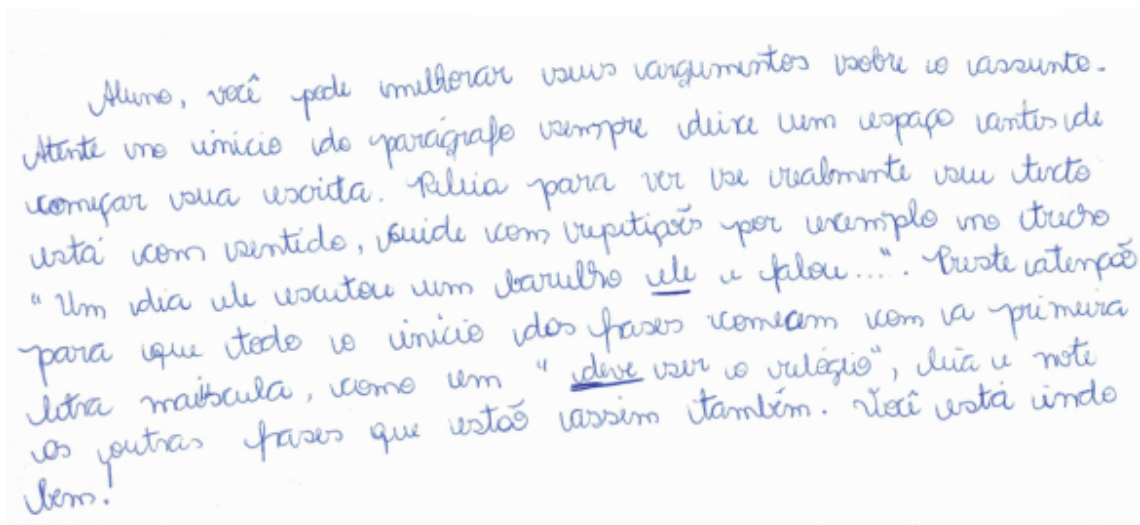 Aluno, você pode melhorar seus argumentos sobre o assunto.
Atente no início do parágrafo sempre deixe um espaço antes de
começar sua escrita. Releia para ver se realmente seu texto
está com sentido, cuide com repetições por exemplo no trecho
"Um dia ele escutou um barulho ele e falou...". Preste atenção
para que todo o início das frases comecem com a primeira
letra maiúscula, como em "deve ser o relógio", leia e note
as outras frases que estão assim também. Você está indo
bem!